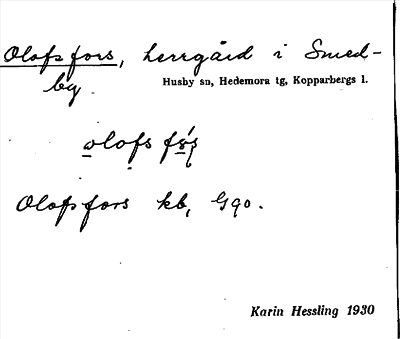 Olofsfors, herrgård i Smed-
by.
Husby sn, Hedemora tg, Kopparbergs l.
Olofsfors kb, Gqo.
Karin Hessling 1930